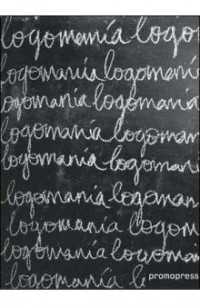 logomanía logo
logomanía logomaní
ogomanía logomanía
logomanía logoman
logomanía logomanía
logomanía logoman
logomanía logom
logomanía logomaní
logomanía l
promopress